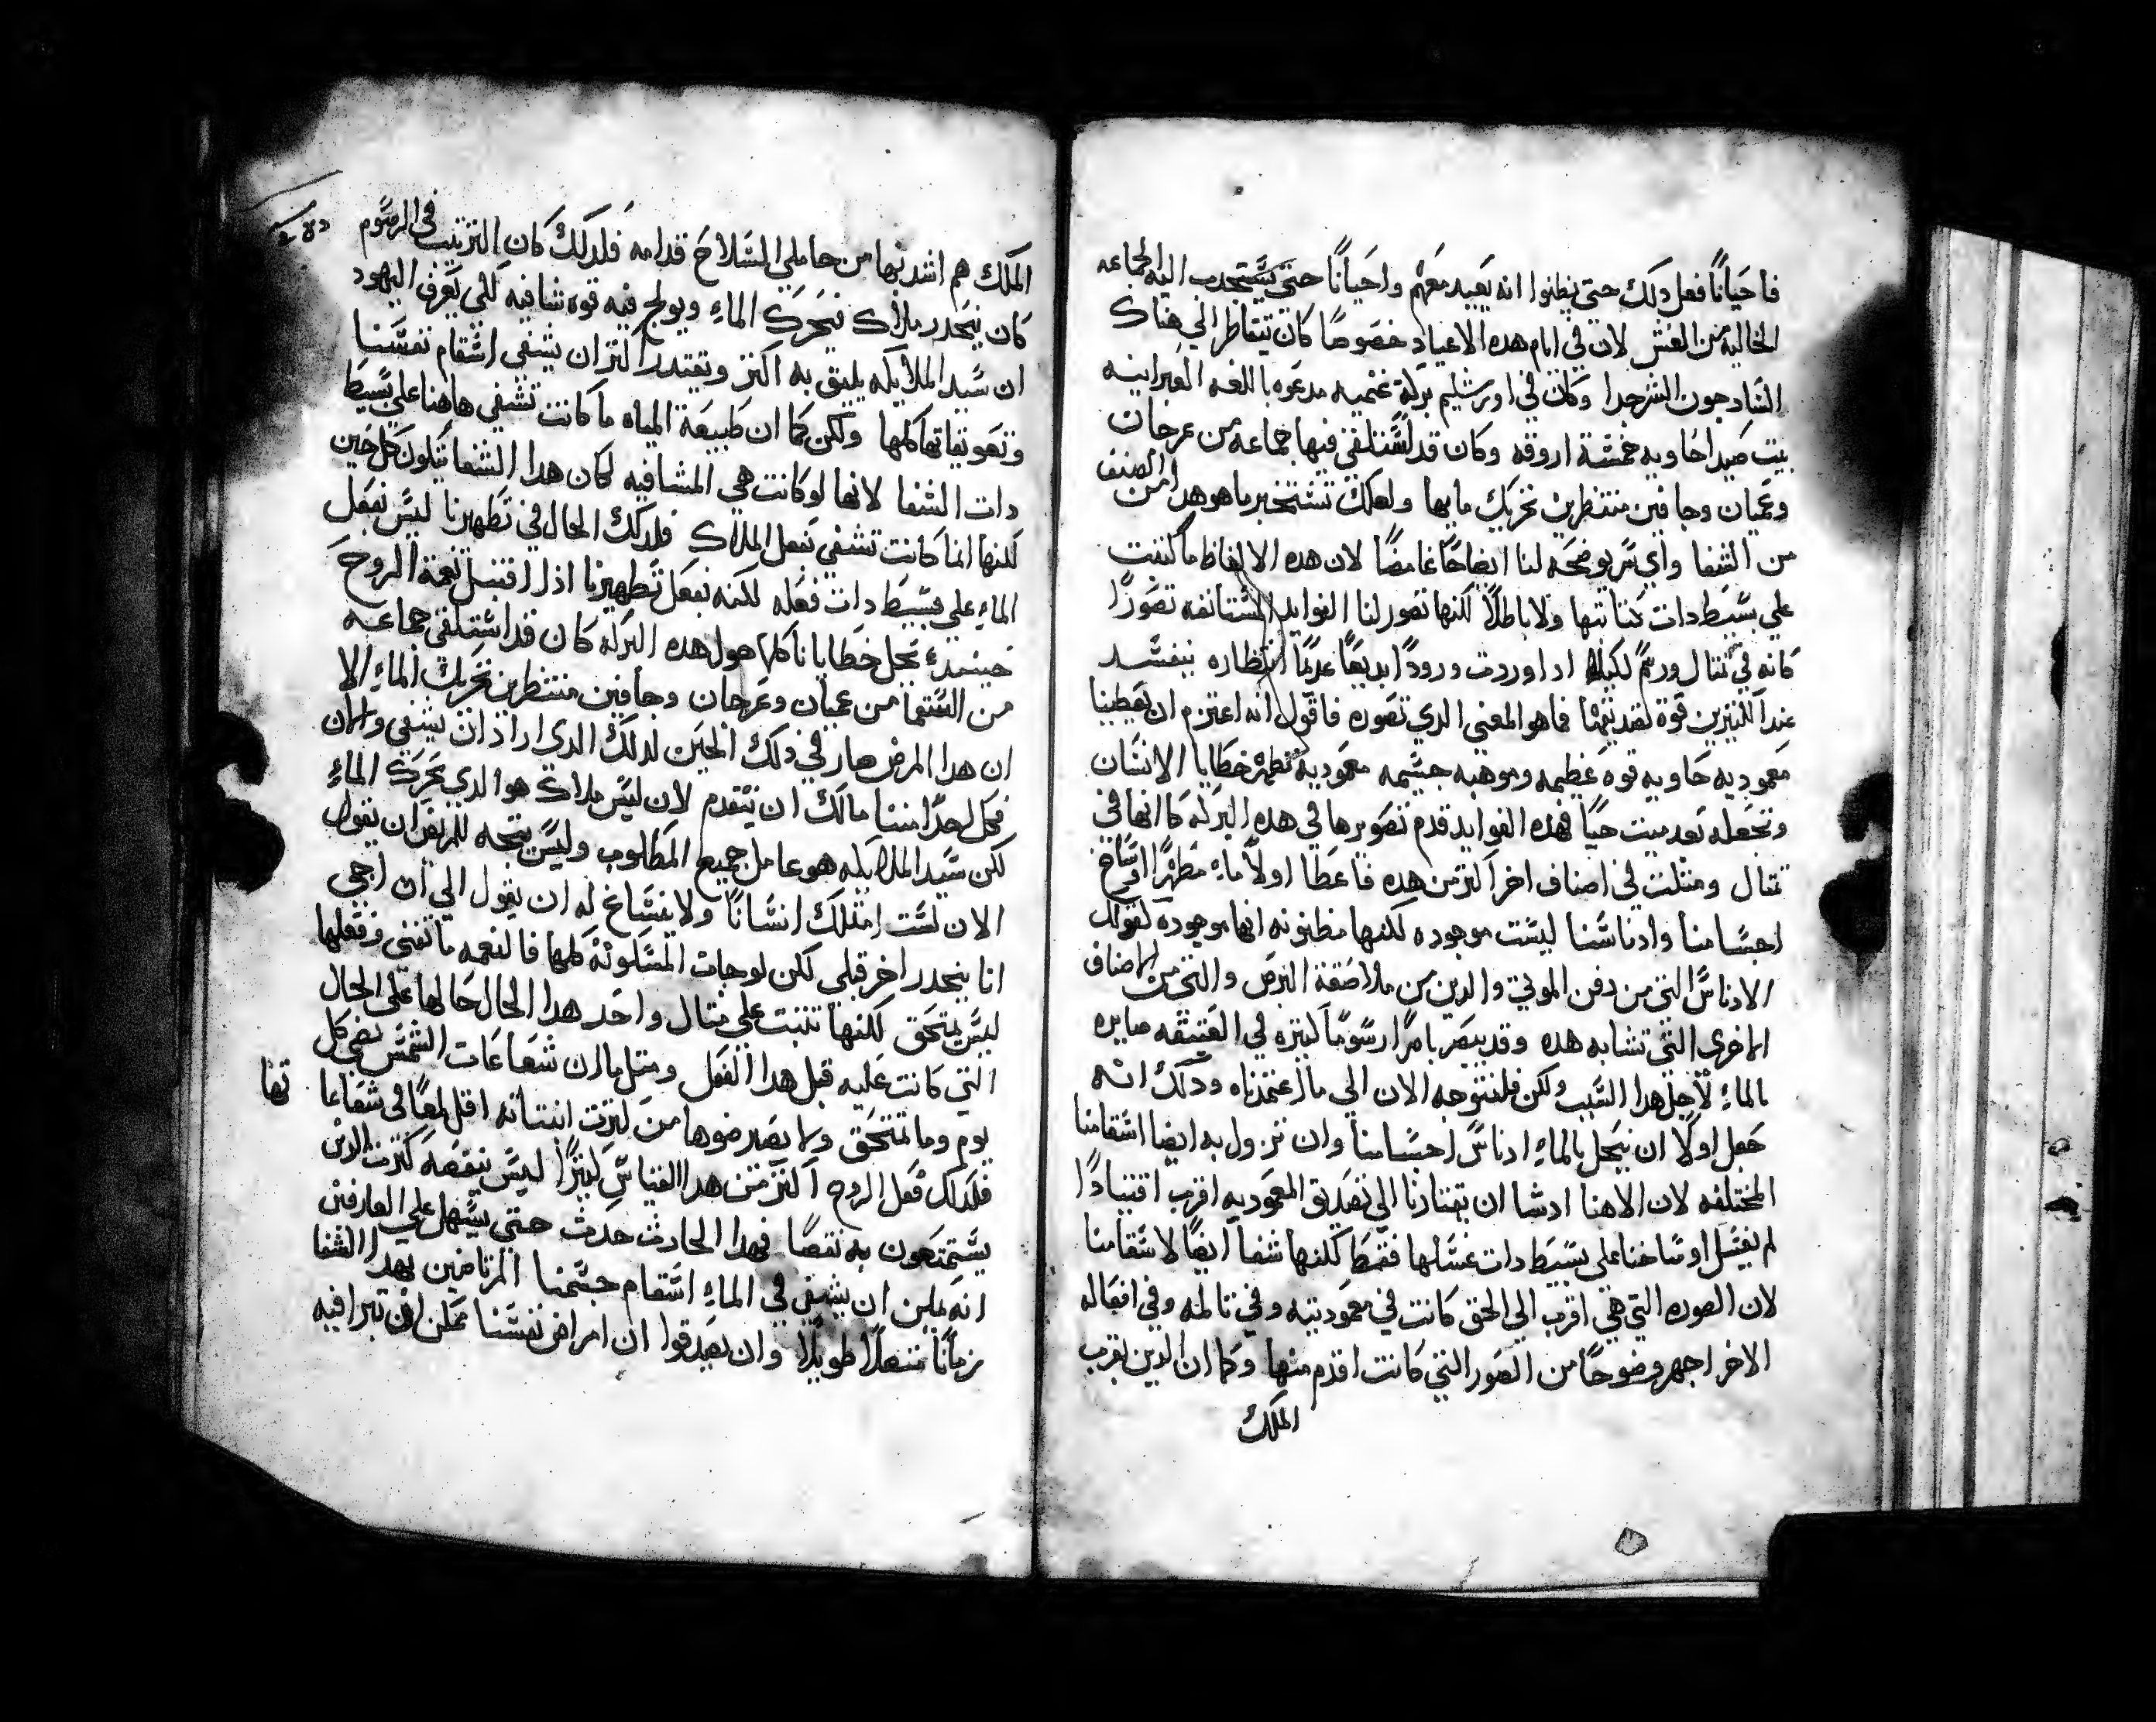 فاحيانًا فعل دلك حتى يظنوا انه يعيد معهم واحيانًا حتى يستجدب اليه الجماعه
الخاليه من الغش لان في ايام هده الاعياد خصوصًا كان يتقاطر الي هناك
السادجون اكثر جدا وكان في اورشليم بركة غنميه مدعوه باللغه العبرانيه
بيت صيدا حاويه خمسة اروقه وكان قد استلقى فيها جماعه من عرجان
وعميان وجافين منتظرين تحريك مايها ولعلك تستخبر ما هو هدا الصنف
من الشفا واي سر يوضحه لنا ايضاحًا غامضًا لان هده الالفاظ ما كتبت
علي بسيط دات كتابتها ولا باطلاً لكنها تصور لنا الفوايد المستانفه تصورًا
كانه في تتال ورسم لكيلا ادا وردت ورودًا بديعًا عديمًا انتظاره يفسد
عند الكثيرين قوة تصديقها فما هو المعني الدي تصوره فاقول انه اعتزم ان يعطينا
معموديه حاويه قوه عظيمه وموهبه جسيمه معموديه تطهر خطايا الانسان
وتجعله بعد ميت حيًا فهده الفوايد قدم تصويرها في هده البركه كانها في
تمتال ومتلت في اصناف اخر اكتر من هده فاعطا اولاً ماءً مطهرًا اوساخ
اجسامنا وادناسنا ليست موجوده لكنها مظنونه انها موجوده لقولك
الادناس التي من دفن الموتي والدين من ملاصقة البرص والتي من الاصناف
الاخري التي تشابه هده وقد يبصر بامرًا رسومًا كتيره في العتيقه صايره
بالماءِ لاجل هدا السبب ولكن فلنتوجه الان الي ما اعتمدناه ودلك انه
جعل اولًا ان تنحل بالماءِ ادناس اجسامنا وان تزول به ايضا اسقامنا
المختلفه لان الاهنا ادشا ان يقتادنا الي تصديق المعموديه اقرب اقتيادًا
لم يغسل اوساخنا علي بسيط دات غسلها فقط لكنها شفا ايضًا لاسقامنا
لان الصوره التي هي اقرب الي الحق كانت في معموديته وفي تالمه وفي افعاله
الاخر اجهر وضوحًا من الصور التي كانت اقدم منها وكما ان الدين بقرب
الملك
الملك هم اشد بها من حاملي السلاح قدامه فلدلك كان الترتيب في الرسوم
كان ينحدر ملاك فيحرك الماءِ ويولج فيه قوه شافيه لكي يعرف اليهود
ان سيد الملايكه يليق به اكتر ويقتدر اكتر ان يشفي اسقام نفسنا
وتعويقاتها كلها ولكن كما ان طبيعة المياه ما كانت تشفي هاهنا علي بسيط
دات الشفا لانها لو كانت هي الشافيه لكان هدا الشفا يكون كل حين
لكنها انما كانت تشفي بفعل الملاك فلدلك الحال في تطهيرنا ليس يفعل
الماءِ علي بسيط دات فعله لكنه يفعل تطهيرنا ادا اقتبل نعمة الروح
حينيدٍ يحل خطايانا كلها حول هده البركه كان قد استلقى جماعه
من السقما من عميان وعرجان وجافين منتظرين تحريك الماءِ الا
ان هدا المرض صار في دلك الحين لدلك الدي اراد ان يشفي والان
فكل احدًا منا مالك ان يتقدم لان ليس ملاك هو الدي يحرك الماءِ
لكن سيد الملايكه هو عامل جميع المطلوب وليس يتجه للمريض ان يقول
الان لست امتلك انسانًا ولا ينساغ له ان يقول الي ان اجي
انا ينحدر اخر قبلي لكن لو جات المسكونه كلها فالنعمه ما تفني وفعلها
ليس يمتحق لكنها تتبت علي متال واحد هدا الحال حالها على الحال
التي كانت عليه قبل هدا الفعل ومتل ما ان شعاعات الشمس تضي كل
يوم وما تمتحق ولا يصير ضوها من كترت انبتاته اقل لمعًا في شعاعا تها
فلدلك فعل الروح اكتر من هدا القياس كتيرًا ليس ينقصه كترت الدين
يستمتعون به نقصًا فهدا الحادث حدث حتي يسهل علي العارفين
انه يمكن ان يشفي في الماءِ اسقام جسمنا المرتاضين بهدا الشفا
زمانًا طويلًا وان يصدقوا ان امراض نفسنا يمكن ان تبرا فيه